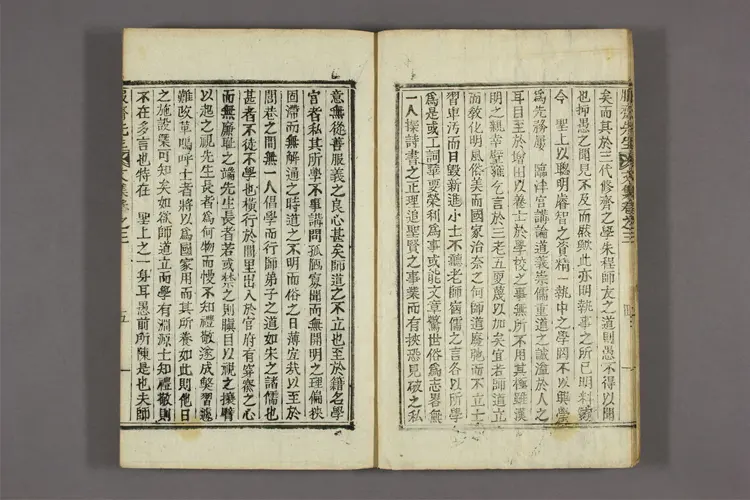 齋先生文集卷之三
矣而其於三代修齊之學朱程師友之道則愚不得以聞
也抑愚之聞見不及而然歟此亦明執事之所已明料
今 聖上以聰明睿智之資精一執中之學罔不以興學
爲先務屢 臨泮宮講論道義崇儒重道之誠溢於人之
耳目至於增田以養士於學校之事無所不用其極雖漢
明之親幸辟雍乞言於三老五更蔑以加矣宜若師道立
而敎化明風俗美而國家治奈之何師道廢弛而不立士
習卑汚而日毁新進小士不聽老師宿儒之言各以所學
爲是或工詞華要榮利爲事或能文章驚世俗爲志畧無
一人探詩書之正理追聖賢之事業而有挾恐見破之私
意無從善服義之良心甚矣師道之不立也至於籍名學
宮者私其所學不事講問孤陋寡聞而無開明之理偏狹
固滯而無解通之時道之不明而俗之日薄宜哉以至於
閭巷之間無一人倡學而行師弟子之道如朱之諸儒也
甚者不徒不學也橫行於閭里出入於官府有穿窬之心
而無廉耻之端先生長者若或禁之則瞋目以視之攘臂
以起之視先生長者爲何物而慢不知禮敬遂成弊習遽
難改革嗚呼士者將以爲國家用而其所養如此則他日
之施設槩可知矣如欲師道立而學有淵源士知禮敬則
不在多言也特在 聖上之一身耳愚前所陳是也夫師
齋先生文集卷之三
五